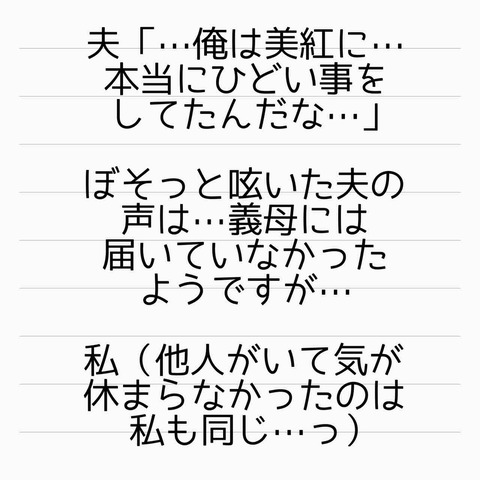 夫「…俺は美紅に…
本当にひどい事を
してたんだな…」
ぼそっと呟いた夫の
声は…義母には
届いていなかった
ようですが…
私（他人がいて気が
休まらなかったのは
私も同じ…っ）